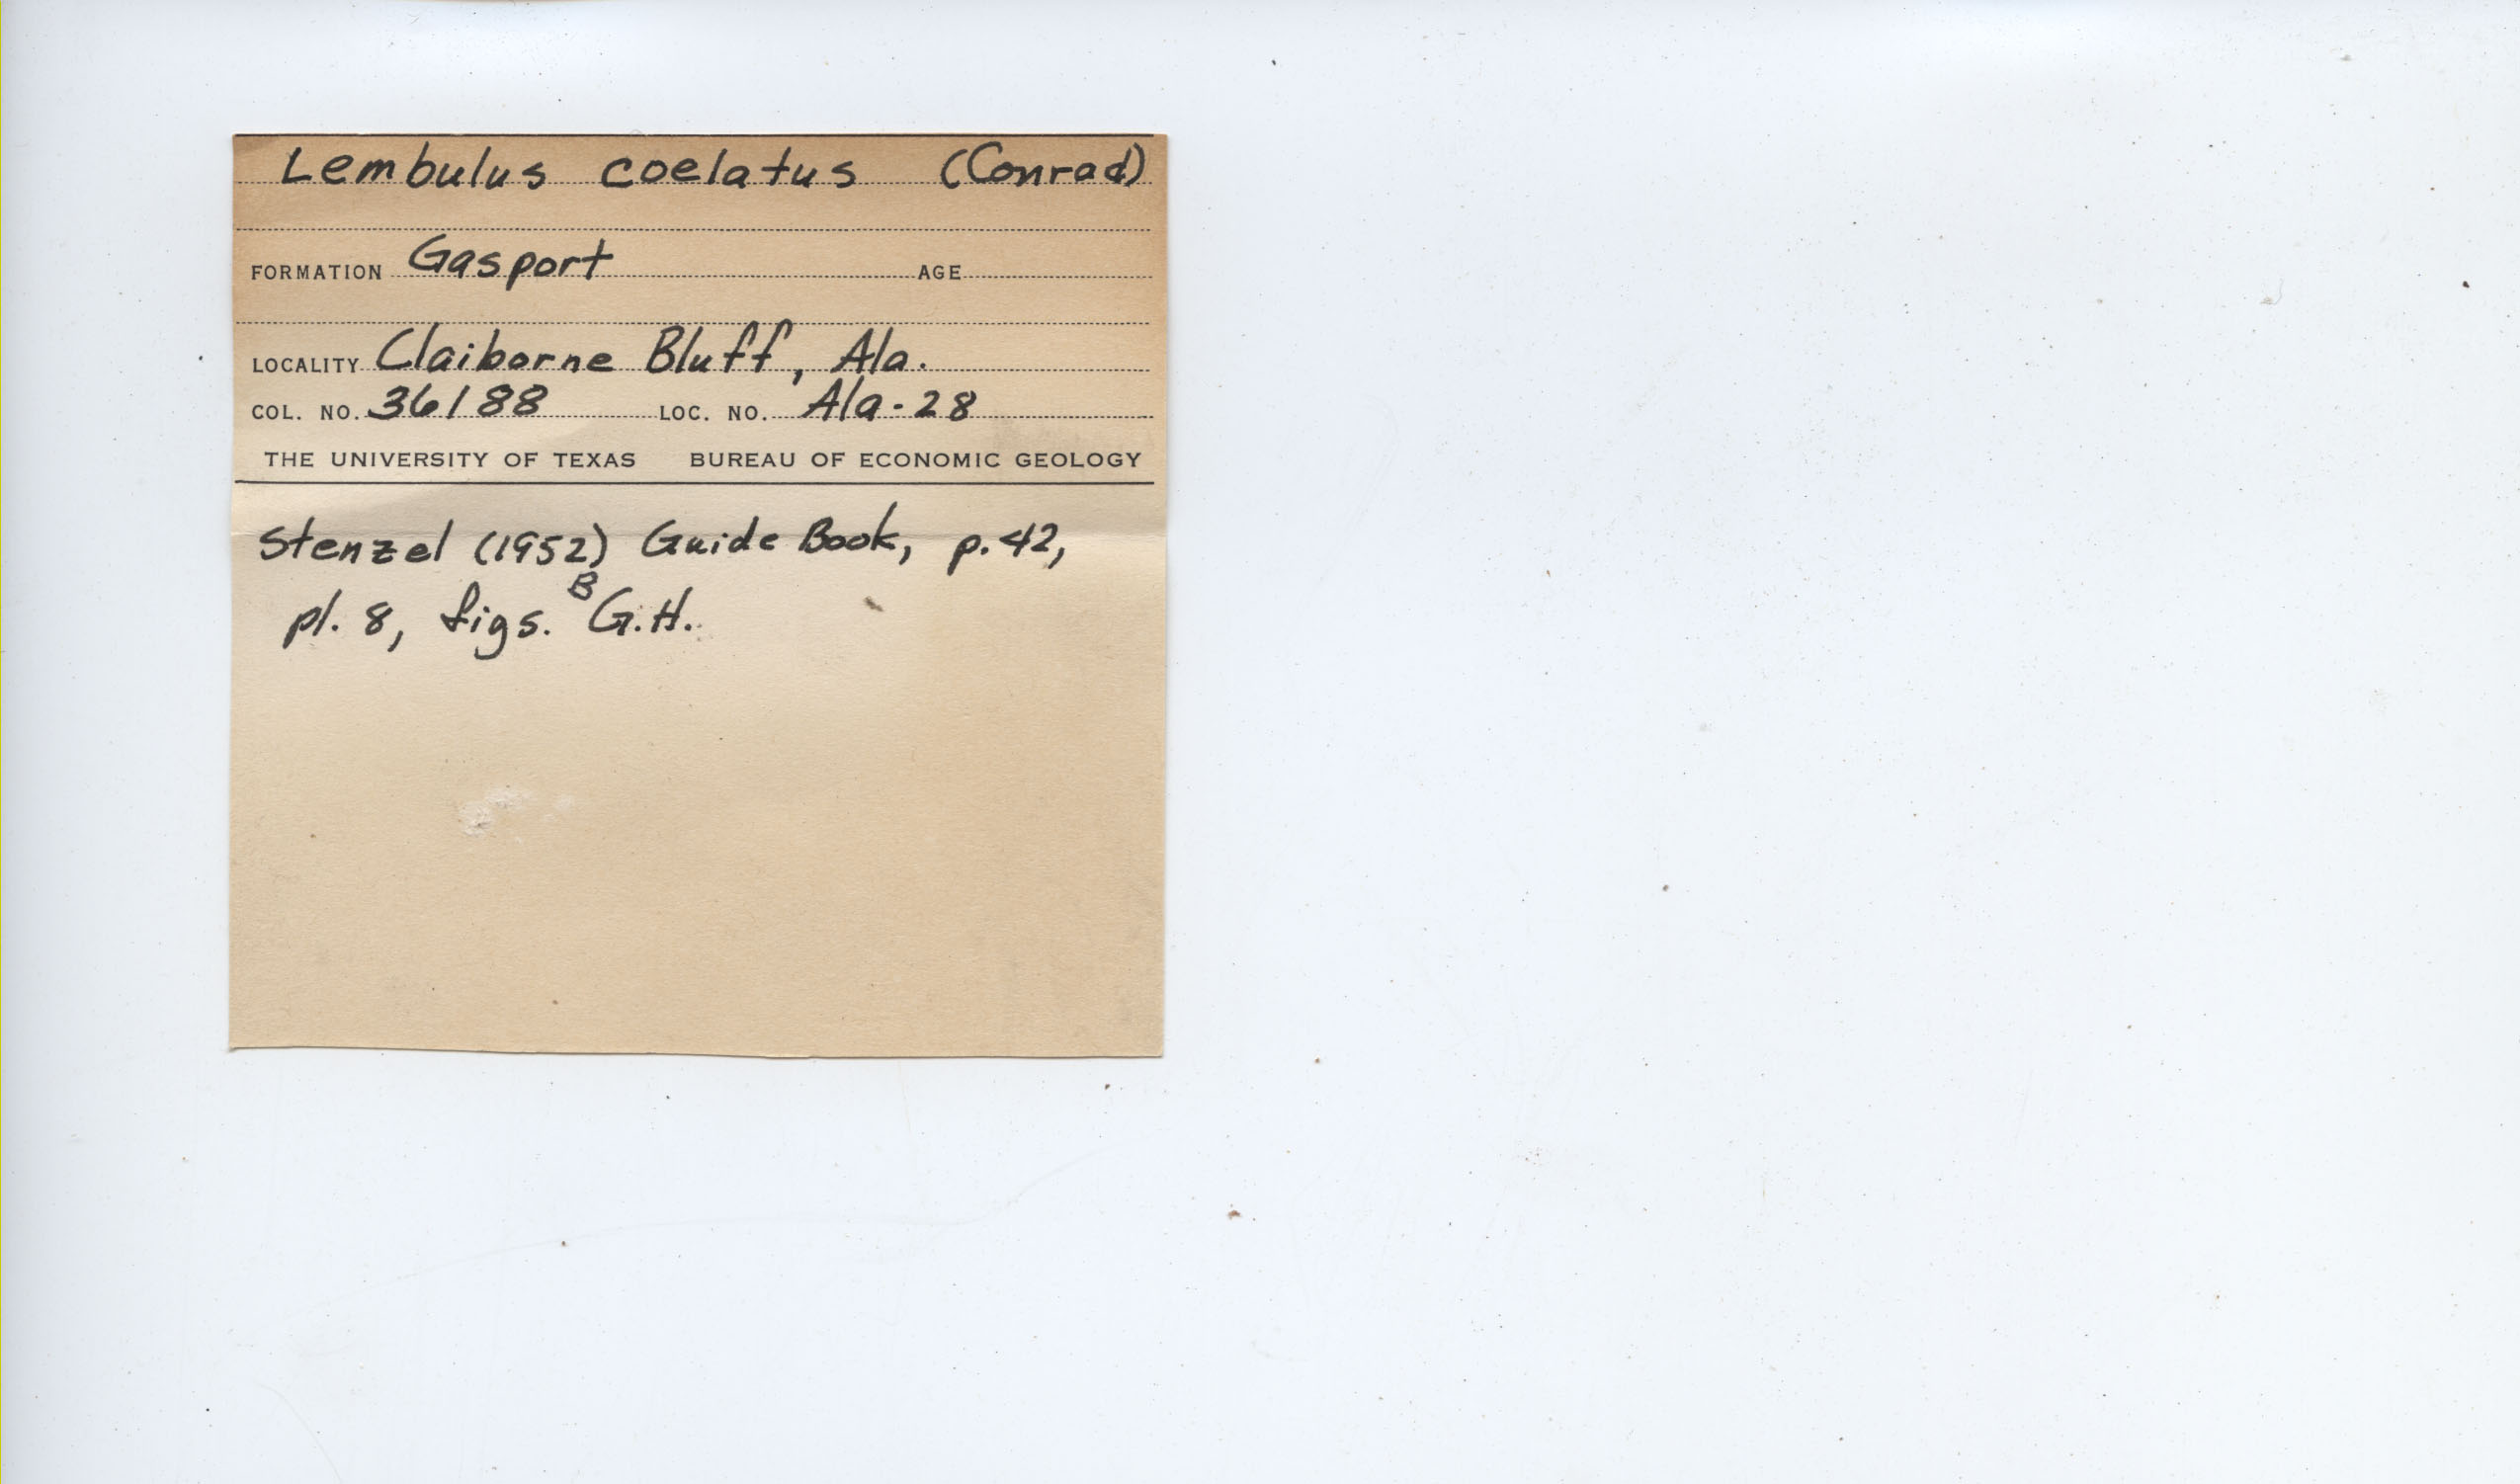 Lembulus coelatus (Conrad)
FORMATION Gasport AGE
LOCALITY Claiborne Bluff, Ala.
COL. NO. 36188 LOC. NO. Ala-28
THE UNIVERSITY OF TEXAS BUREAU OF ECONOMIC GEOLOGY
Stenzel (1952) Guide Book, p. 42,
pl. 8, figs. B G.H.